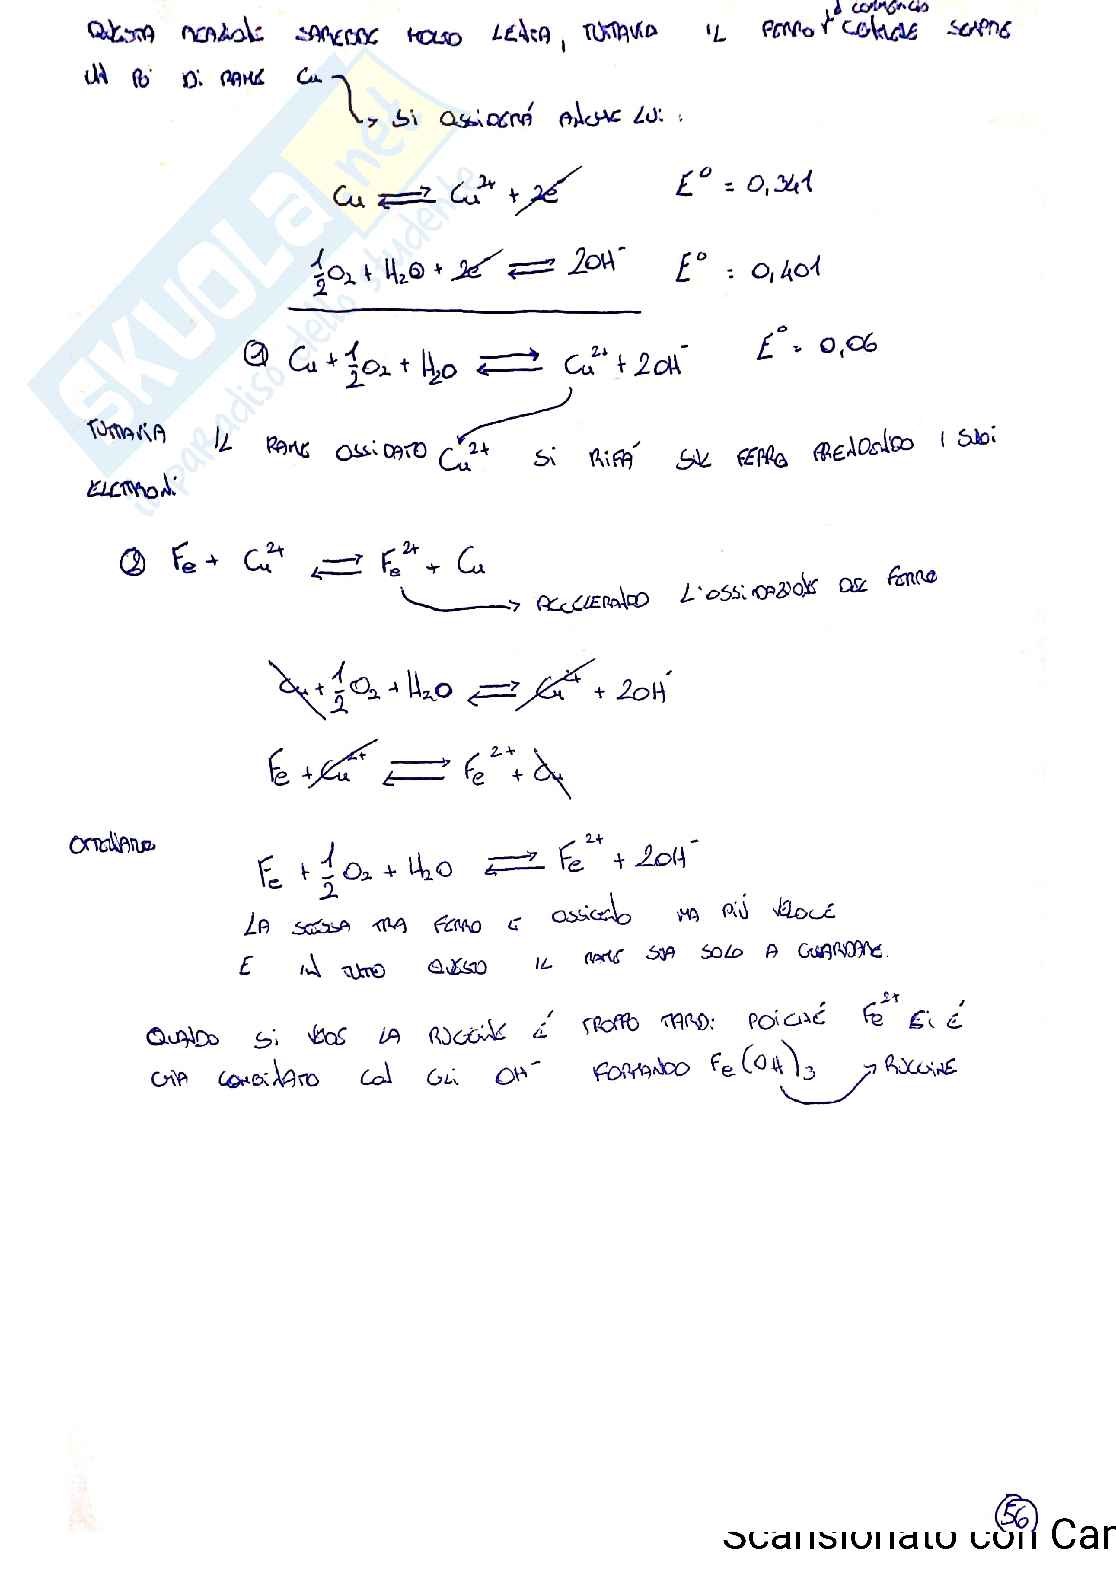 d commercio
QUESTA REAZIONE SAREBBE MOLTO LENTA, TUTTAVIA IL FERRO CONTIENE SEMPRE
UN PO' DI RAME Cu
SI OSSIDERÁ ANCHE LUI:
Cu ⇌ Cu²⁺ + 2e⁻ E⁰ = 0,341
1/2 O₂ + H₂O + 2e⁻ ⇌ 2OH⁻ E⁰ = 0,401
① Cu + 1/2 O₂ + H₂O ⇌ Cu²⁺ + 2OH⁻ E⁰ = 0,06
TUTTAVIA IL RAME OSSIDATO Cu²⁺ SI RIFÁ SUL FERRO PRENDENDO I SUOI
ELETTRONI
② Fe + Cu²⁺ ⇌ Fe²⁺ + Cu
ACCELERANDO L'OSSIDAZIONE DEL FERRO
Cu + 1/2 O₂ + H₂O ⇌ Cu²⁺ + 2OH⁻
Fe + Cu²⁺ ⇌ Fe²⁺ + Cu
OTTENIAMO
Fe + 1/2 O₂ + H₂O ⇌ Fe²⁺ + 2OH⁻
LA STESSA TRA FERRO E OSSIGENO MA PIÚ VELOCE
E IN TUTTO QUESTO IL RAME STA SOLO A GUARDARE.
QUANDO SI VEDE LA RUGGINE É TROPPO TARDI POICHÉ Fe²⁺ SI É
GIA COMBINATO CON GLI OH⁻ FORMANDO Fe(OH)₃ → RUGGINE
56
Scansionato con Cam
SKUOLA.net
il paradiso dello studente